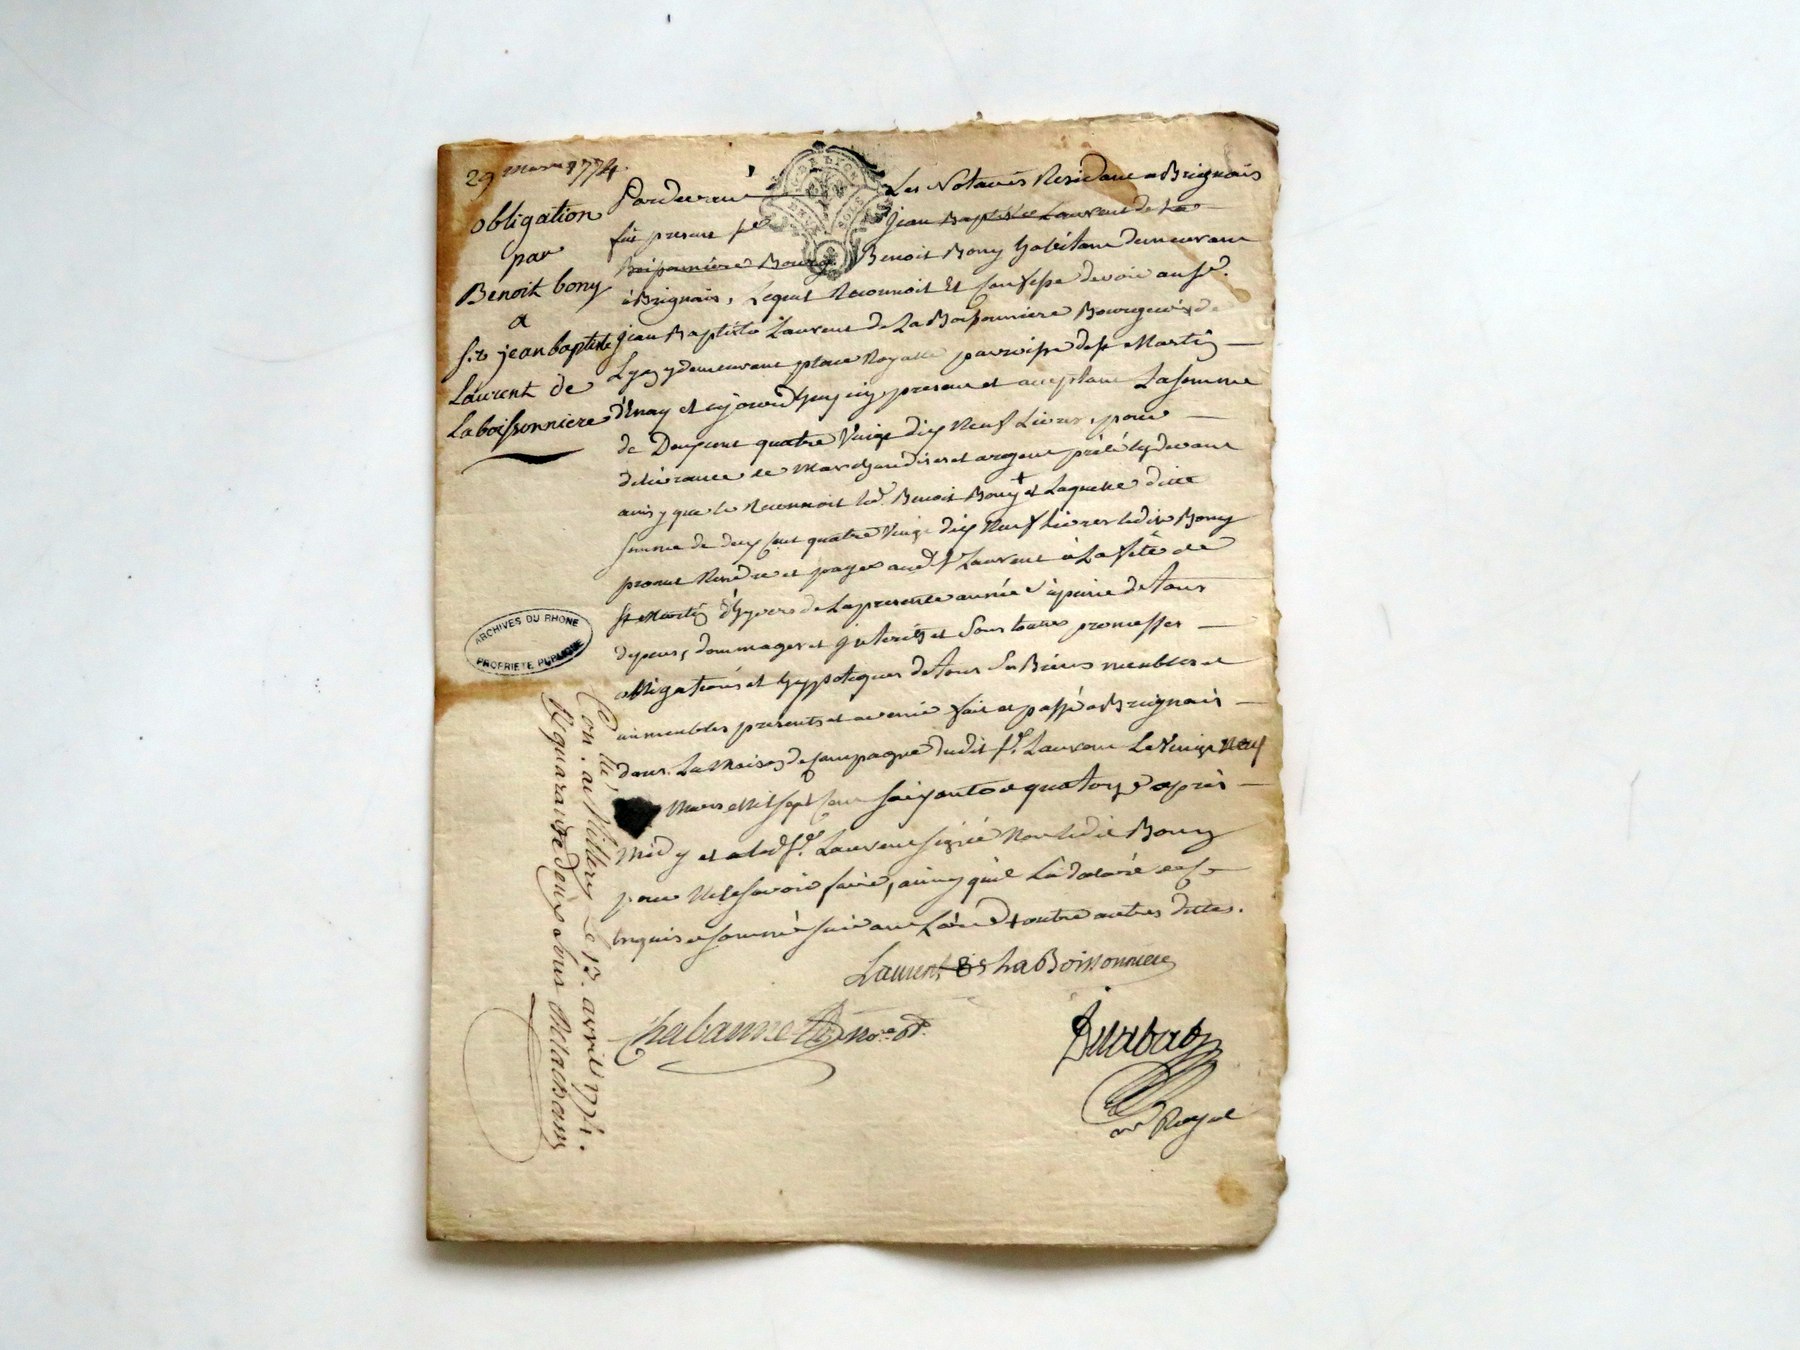 29 mars 1774.
obligation
par
Benoit bony
a
sr. jean baptiste
Laurent de
La boissonniere
GN. DE LYON
SOLS
Pardevant Les Notaires Residant a Brignais
fut present sr. jean Baptiste Laurent de La
Boissonniere Bourg. Benoit Bony habitant demeurant
a Brignais, Lequel Reconnoit Et confesse devoir au sr.
jean Baptiste Laurent de La Boissonniere Bourgeois de
Lyon y demeurant place Royalle parroisse de st Martin
d'Enay et cejourd'huy icy present et acceptant La somme
de Deux cent quatre Vingt dix Neuf Livres, pour
délivrance de Marchandises et argent prété cy devant
ainsy que le Reconnoit led. Benoit Bony + et Laquelle ditte
somme de deux cent quatre Vingt dix Neuf Livres ledit Bony
promet Rendre et payer aud. sr Laurent à La fête de
st Martin d'hyvers de La presente année à peine de tous
depens, dommages et interêts et sous toutes promesses
obligations et hyppoteques de tous ses Biens meubles et
immeubles presents et avenir fait et passé a Brignais
dans La Maison de Campagne dudit sr. Laurent Le Vingt Neuf
Mars Mil sept Cent soixante quatorze après
Midy et a led. sr. Laurent signé Non ledit Bony
pour Ne le savoir faire, ainsy qu'il L'a declaré de ce
enquis et sommé suivant L'ord + outre autres dettes.
Laurent De La Boissonniere
Chabanne
Royal
ARCHIVES DU RHONE
PROPRIETE PUBLIQUE
Con. a Millery Le 13. avril 1774.
R quarante deux sous